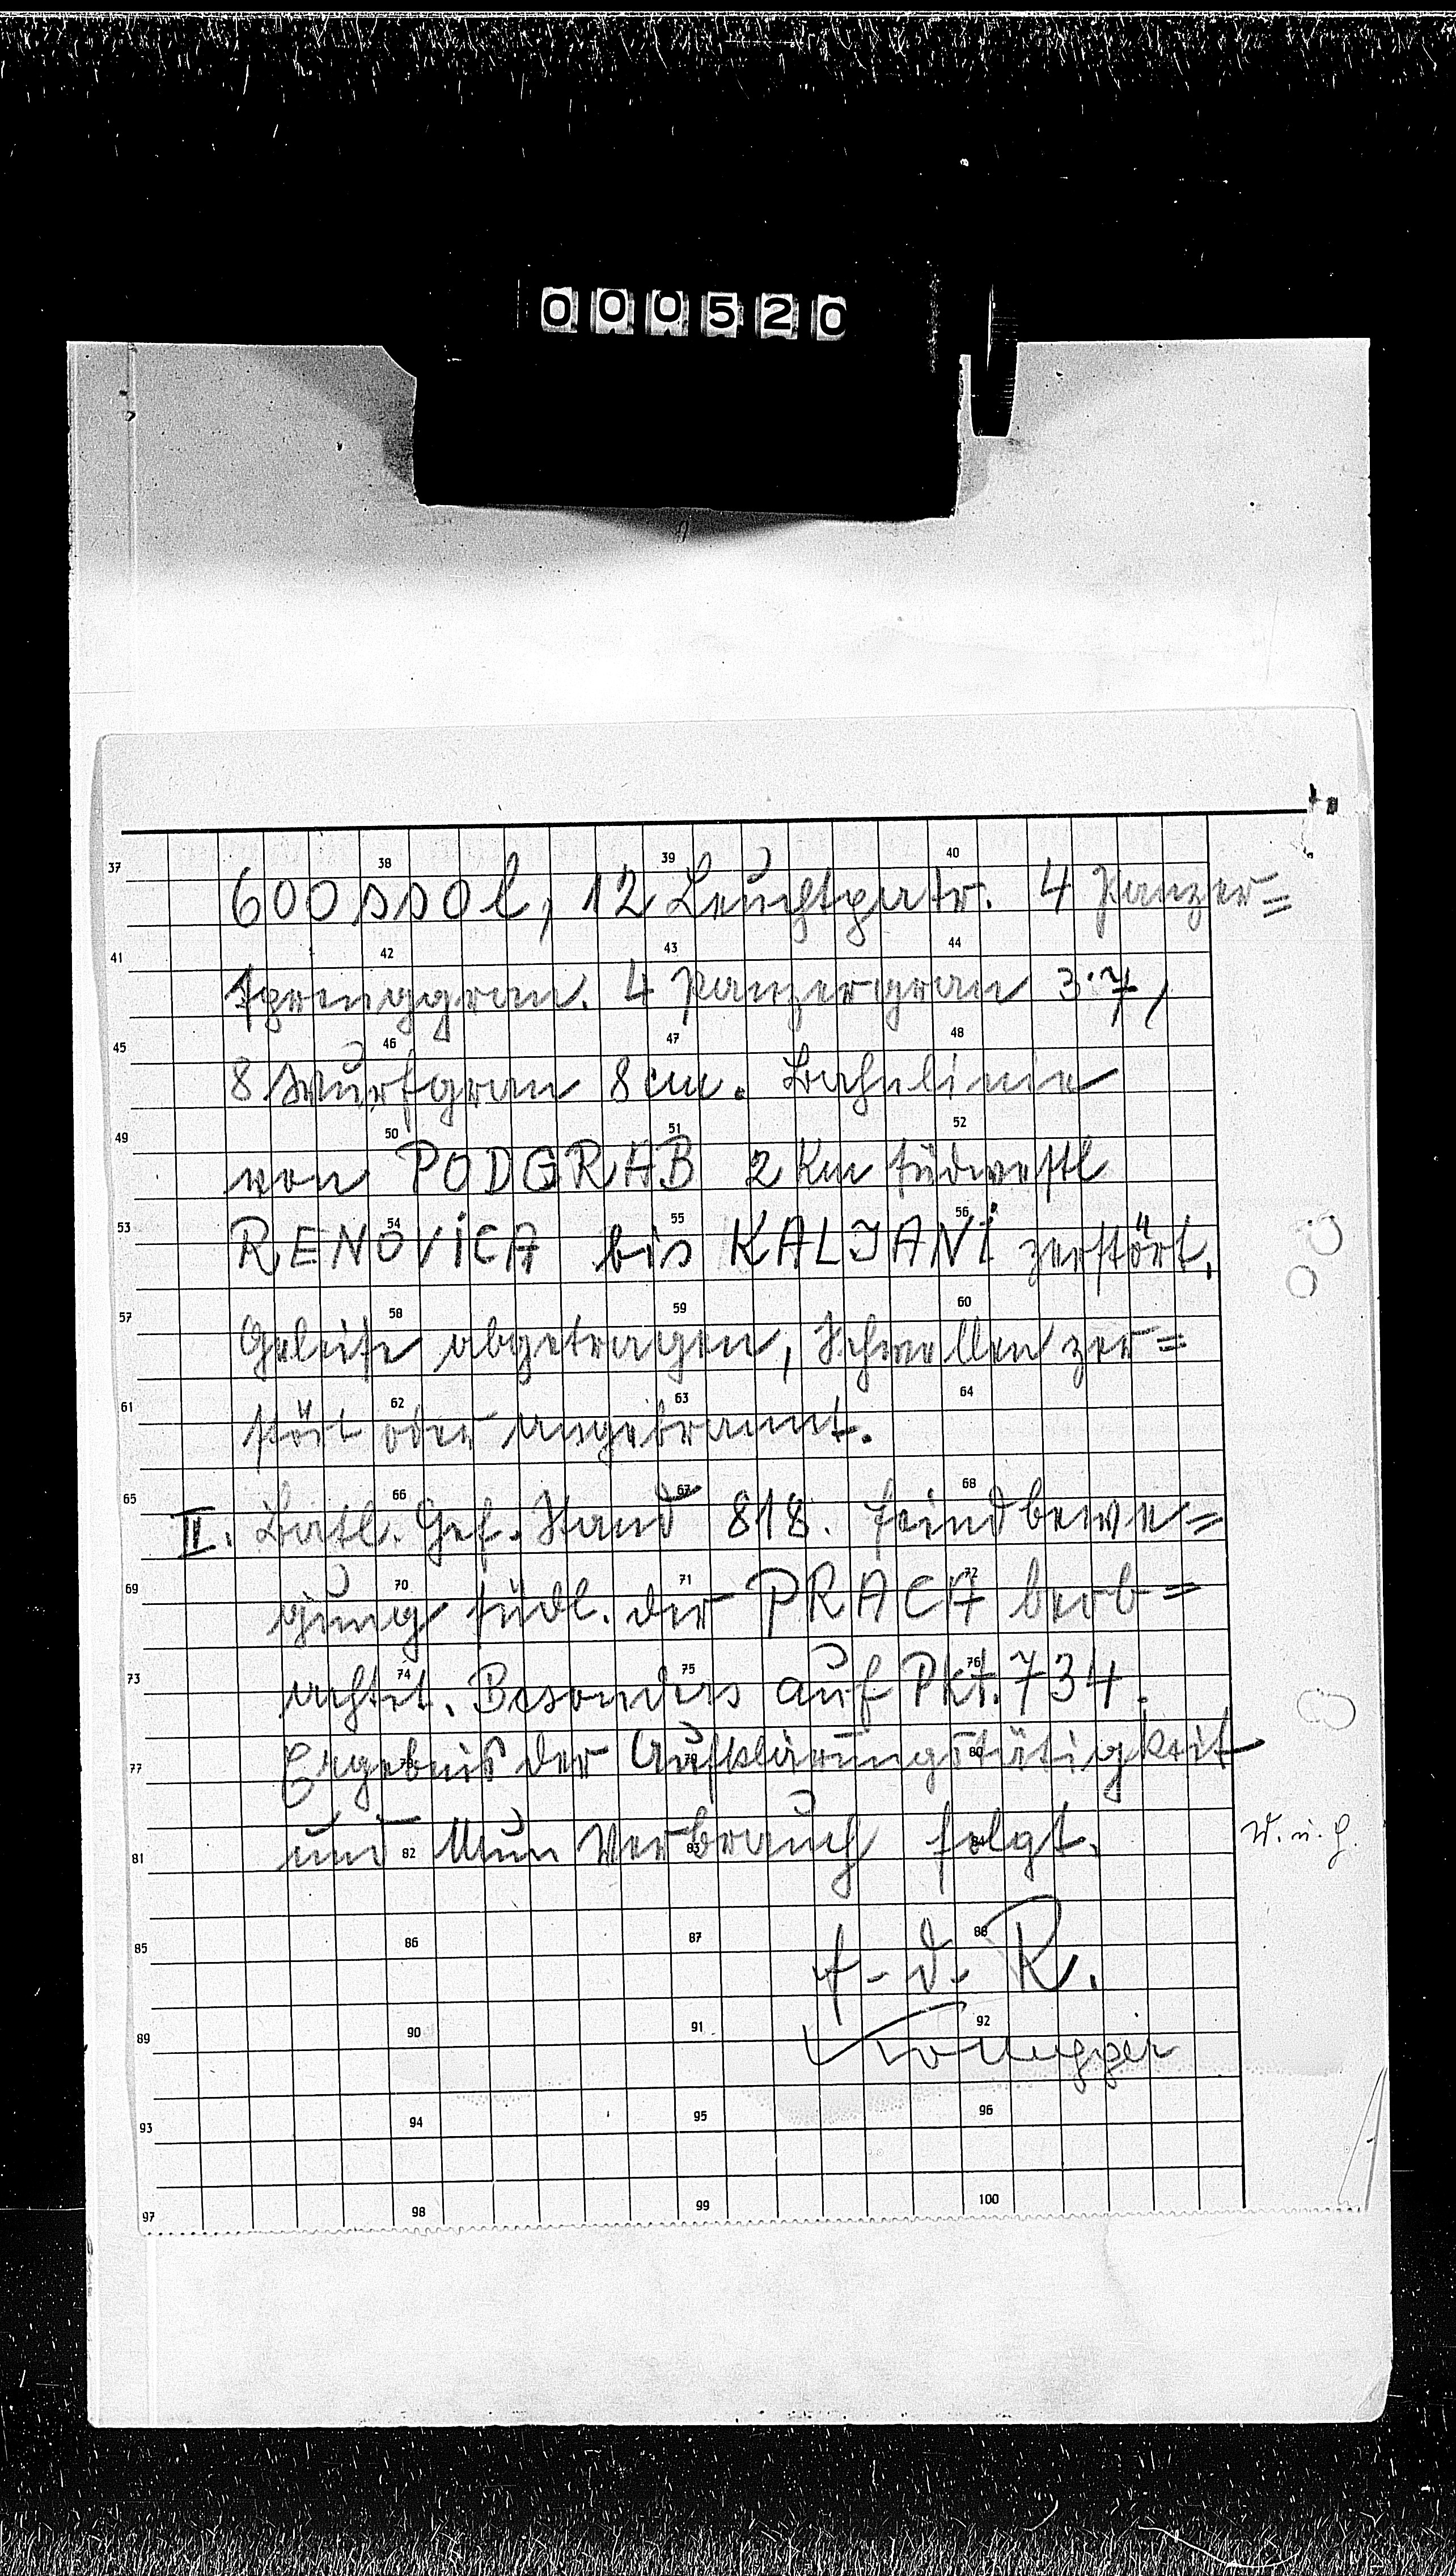 000520
600 ssOl, 12 Leuchtpatr. 4 Panzer=
sprenggran. 4 Panzergran 3.7,
8 Wurfgran 8 cm. Bahnlinie
von PODGRAB 2 Km südwestl
RENOVICA bis KALJANI zerstört,
Geleise abgetragen, Schwellen zer=
stört oder angebrannt.
II. Batl. Gef. Stand 818. Feindbewe=
gung südl. der PRACA beob=
achtet. Besonders auf Pkt. 734.
Ergebnis der Aufklärungstätigkeit
und Mun Verbrauch folgt.
f. d. R.
37 38 39 40
41 42 43 44
45 46 47 48
49 50 51 52
53 54 55 56
57 58 59 60
61 62 63 64
65 66 67 68
69 70 71 72
73 74 75 76
77 79 80
81 82 83 84
85 86 87 88
89 90 91 92
93 94 95 96
97 98 99 100